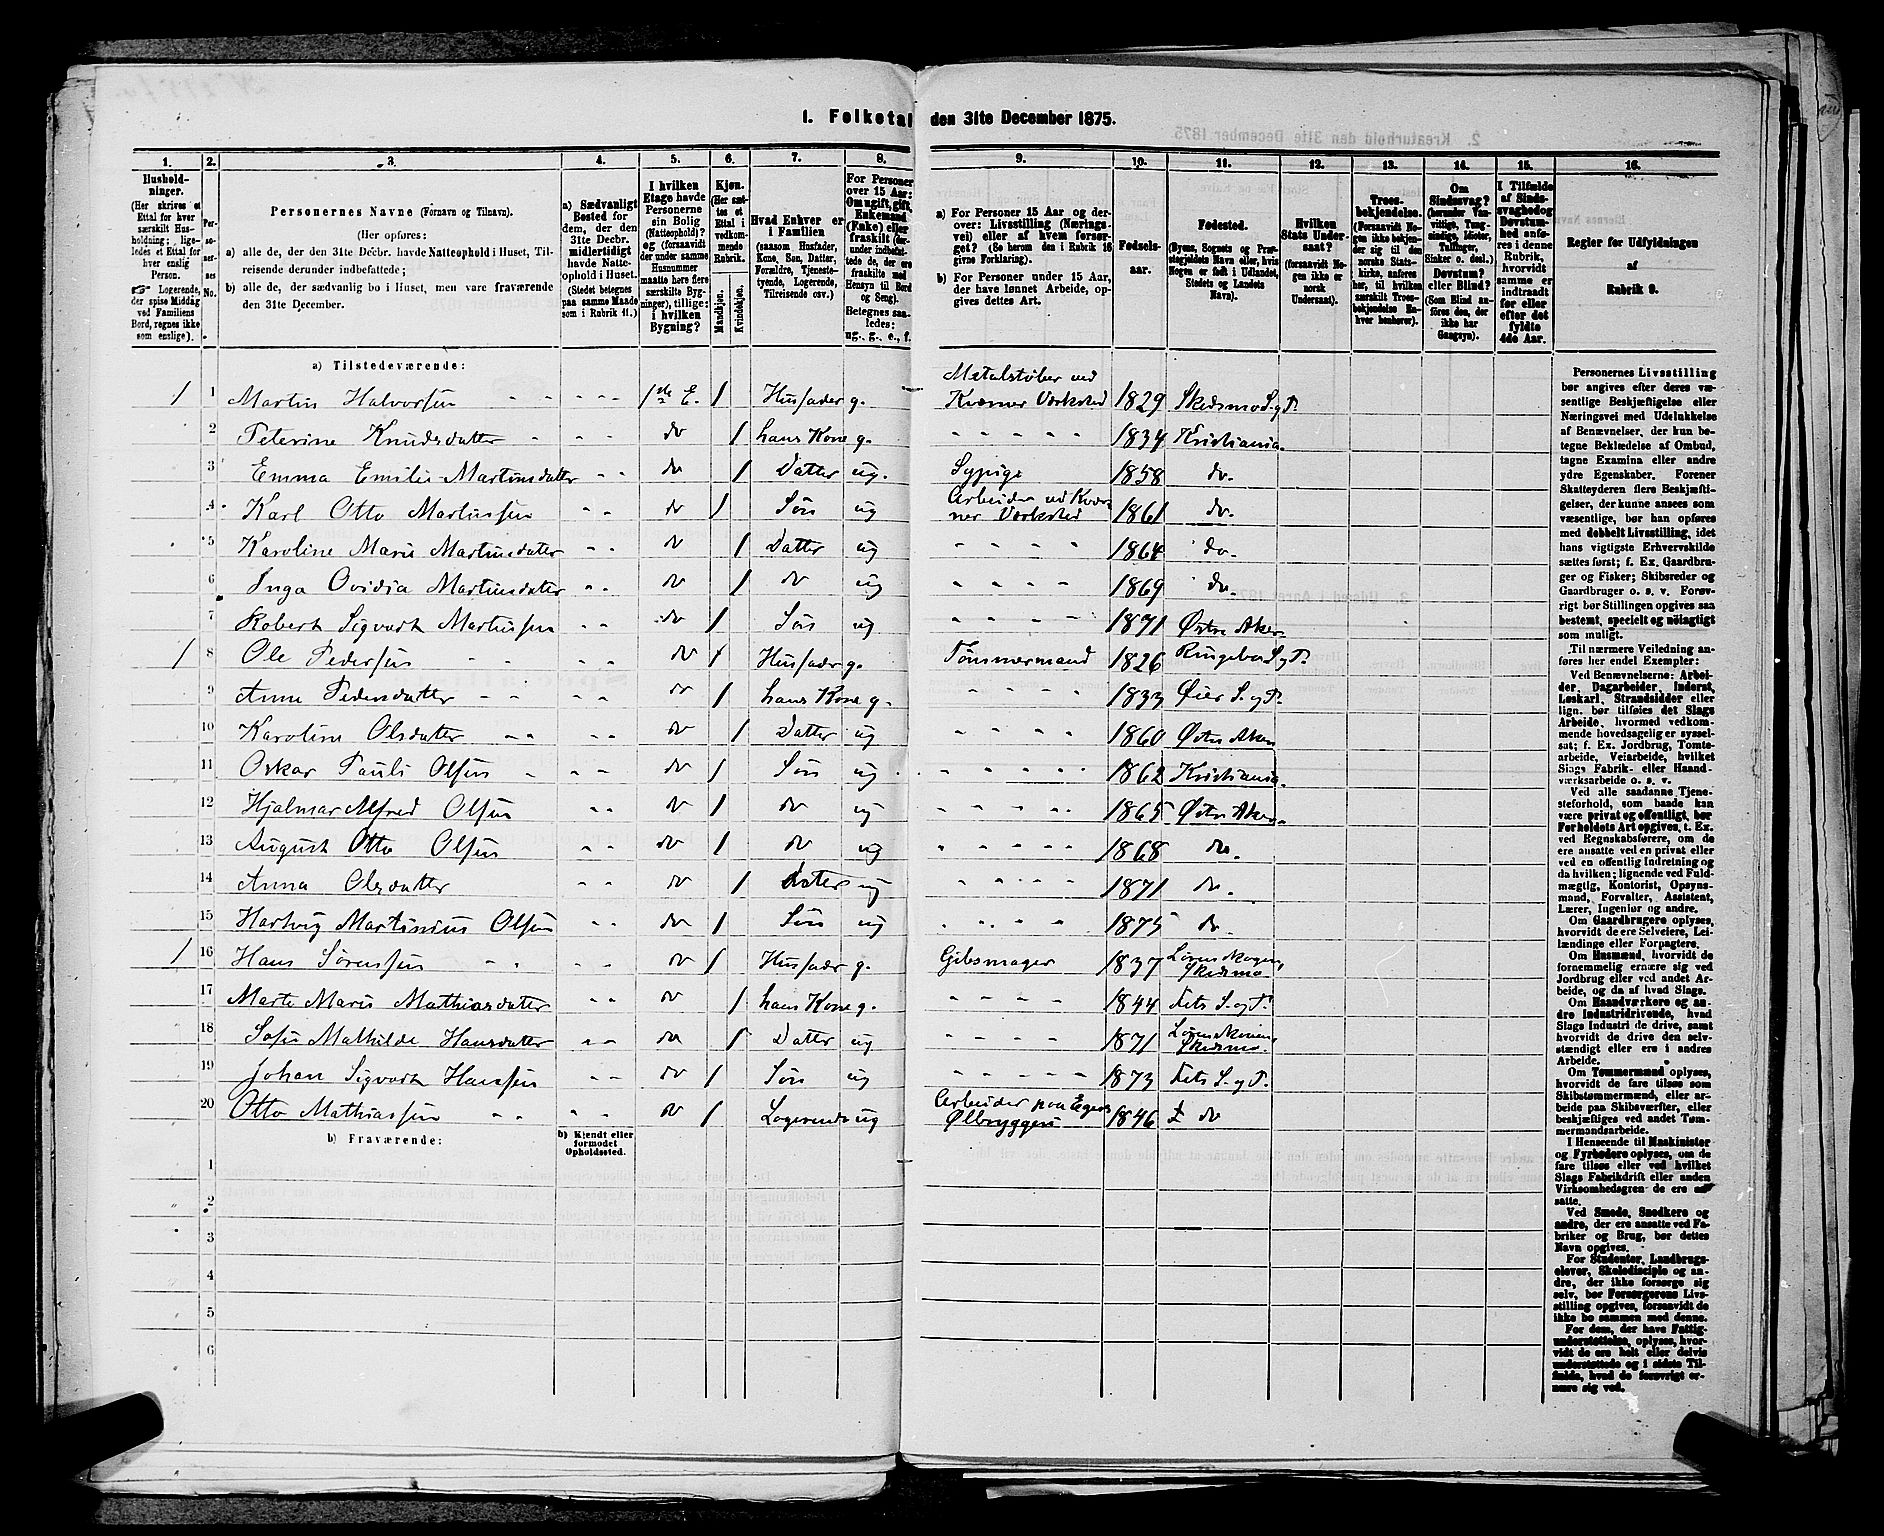 1. Folketal den 31te December 1875.
1. 2. 3. 4. 5. 6. 7. 8. 9. 10. 11. 12. 13. 14. 15. 16.
Hushold-
ninger.
(Her skrives et
Ettal for hver
særskilt Hus-
holdning; lige-
ledes et Ettal for
hver enslig
Person.
Logerende,
der spise Middag
ved Familiens
Bord, regnes ikke
som enslige).
Per-
so-
ner-
nes
No.
Personernes Navne (Fornavn og Tilnavn).
(Her opføres:
a) alle de, der den 31te Decbr. havde Natteophold i Huset, Til-
reisende derunder indbefattede;
b) alle de, der sædvanlig bo i Huset, men vare fraværende
den 31te December.
a) Sædvanligt
Bosted for
dem, der den
31te Decbr.
midlertidigt
havde Natte-
ophold i Huset.
(Stedet betegnes
paa samme Maade
som i Rubrik 11.)
I hvilken
Etage havde
Personerne
sin Bolig
(Natteophold)?
og (forsaavidt
der under samme
Husnummer
maatte høre flere
særskilte Byg-
ninger), tillige:
i hvilken
Bygning?
Kjøn.
(Her sæt-
tes et
Ettal i
vedkom-
mende
Rubrik.
Mandkjøn.
Kvindekjøn.
Hvad Enhver er
i Familien
(saasom Husfader,
Kone, Søn, Datter,
Forældre, Tjeneste-
tyende, Logerende,
Tilreisende osv.)
For Personer
over 15 Aar:
Om ugift, gift,
Enkemand
(Enke) eller
fraskilt (der-
under indbefat-
tede de, der ere
fraskilte med
Hensyn til Bord
og Seng).
Betegnes saa-
ledes:
ug., g., e., f.
a) For Personer 15 Aar og der-
over: Livsstilling (Nærings-
vei) eller af hvem forsør-
get? (Se herom den i Rubrik 16
givne Forklaring).
b) For Personer under 15 Aar,
der have lønnet Arbeide, op-
gives dettes Art.
Fødsels-
aar.
Fødested.
(Byens, Sognets og Præ-
stegjeldets Navn eller, hvis
Nogen er født i Udlandet,
Stedets og Landets
Navn).
Hvilken
Stats Under-
saat?
(forsaavidt No-
gen ikke er
norsk
Undersaat).
Troes-
bekjendelse.
(Forsaavidt No-
gen ikke bekjen-
der sig til den
norske Stats-
kirke, anføres
her, til hvilken
særskilt Troes-
bekjendelse En-
hver henhører).
Om
Sindssvag?
(herunder Van-
vittige, Tung-
sindige, Idioter,
Tullinger,
Sinker o. desl.)
Døvstum?
eller Blind?
(Som Blind an-
føres den, der
ikke har
Gangsyn).
I Tilfælde
af Sinds-
svaghed og
Døvstum-
hed anfø-
res i denne
Rubrik,
hvorvidt
samme er
indtraadt
før eller
efter det
fyldte
4de Aar.
Regler for Udfyldningen
af
Rubrik 9.
a) Tilstedeværende:
1 1 Martin Halvorsen 1ste E. 1 Husfader g. Metalstøber ved Kværner Værksted 1829 Skedsmo S. og P.
2 Peterine Knudsdatter do 1 hans Kone g. 1834 Kristiania
3 Emma Emilie Martinsdatter do 1 Datter ug. Sypige 1858 do.
4 Karl Otto Martinsen do 1 Søn ug Arbeider ved Kværner Værksted 1861 do.
5 Karoline Marie Martinsdatter do 1 Datter ug 1864 do.
6 Inga Ovidia Martinsdatter do 1 do ug 1869 do.
7 Robert Sigvart Martinsen do 1 Søn ug 1871 Østre Aker
1 8 Ole Pedersen do 1 Husfader g. Tømmermand 1826 Ringebo S. og P.
9 Anne Pedersdatter do 1 hans Kone g. 1833 Øier S. og P.
10 Karoline Olsdatter do 1 Datter ug 1860 Østre Aker
11 Oskar Pauli Olsen do 1 Søn ug 1862 Kristiania
12 Hjalmar Alfred Olsen do 1 do ug 1865 Østre Aker.
13 August Otto Olsen do 1 do ug 1868 do.
14 Anna Olsdatter do 1 Datter ug 1871 do.
15 Hartvig Martinius Olsen do 1 Søn ug 1875 do.
1 16 Hans Sørensen do 1 Husfader g. Gibsmager 1837 Lørenskogen, Skedsmo
17 Marte Marie Mathiasdatter do 1 hans Kone g. 1844 Fets S. og P.
18 Sofie Mathilde Hansdatter do 1 Datter ug 1871 Lørenskogen, Skedsmo.
19 Johan Sigvart Hansen do 1 Søn ug 1873 Fets S. og P.
20 Otto Mathiassen do 1 Logerende ug Arbeider paa Egers Ølbryggeri 1846 do
b) Fraværende:
b) Kjendt eller
formodet
Opholdssted.
1
2
3
4
5
6
Personernes Livsstilling
bør angives efter deres væ-
sentlige Beskjæftigelse eller
Næringsvei med Udelukkelse
af Benævnelser, der kun be-
tegne Beklædelse af Ombud,
tagne Examina eller andre
ydre Egenskaber. Forener
Skatteyderen flere Beskjæfti-
gelser, der kunne ansees som
væsentlige, bør han opføres
med dobbelt Livsstilling, idet
hans vigtigste Erhvervskilde
sættes først; f. Ex. Gaardbru-
ger og Fisker; Skibsreder og
Gaardbruger o. s. v. Forøv-
rigt bør Stillingen opgives saa
bestemt, specielt og nøiagtigt
som muligt.
Til nærmere Veiledning an-
føres her endel Exempler:
Ved Benævnelserne: Arbei-
der, Dagarbeider, Inderst,
Løskarl, Strandsidder eller
lign. bør tilføies det Slags
Arbeide, hvormed vedkom-
mende hovedsagelig er syssel-
sat; f. Ex. Jordbrug, Tomte-
arbeide, Veiarbeide, hvilket
Slags Fabrik- eller Haand-
værksarbeide o. s. v.
Ved alle saadanne Tjene-
steforhold, som baade kan
være privat og offentligt, bør
Forholdets Art opgives, t. Ex.
ved Regnskabsførere, om de
ere ansatte ved en privat eller
ved en offentlig Indretning og
da hvilken; lignende ved Fuld-
mægtig, Kontorist, Opsyns-
mand, Forvalter, Assistent,
Lærer, Ingeniør og andre.
Om Gaardbrugere oplyses,
hvorvidt de ere Selveiere, Lei-
lændinge eller Forpagtere.
Om Husmænd, hvorvidt de
fornemmelig ernære sig ved
Jordbrug eller ved andet Ar-
beide, og da af hvad Slags.
Om Haandværkere og an-
dre Industridrivende, hvad
Slags Industri de drive, samt
hvorvidt de drive den selv-
stændigt eller ere i andres
Arbeide.
Om Tømmermænd oplyses,
hvorvidt de fare tilsøs som
Skibstømmermænd, eller ar-
beide paa Skibsværfter, eller
beskjæftiges ved andet Tøm-
mermandsarbeide.
I Henseende til Maskinister
og Fyrbødere oplyses, om de
fare tilsøs eller ved hvilket
Slags Fabrikdrift eller anden
Virksomhedsgren de ere an-
satte.
Ved Smede, Snedkere og
andre, der ere ansatte ved Fa-
briker og Brug, bør dettes
Navn opgives.
For Studenter, Landbrugs-
elever, Skoledisciple og an-
dre, der ikke forsørge sig
selv, bør Forsørgerens Livs-
stilling opgives, forsaavidt de
ikke bo sammen med denne.
For dem, der have Fattig-
understøttelse, oplyses, hvor-
vidt de ere helt eller delvis
understøttede og i sidste Til-
fælde, hvad de forøvrigt er-
nære sig ved.